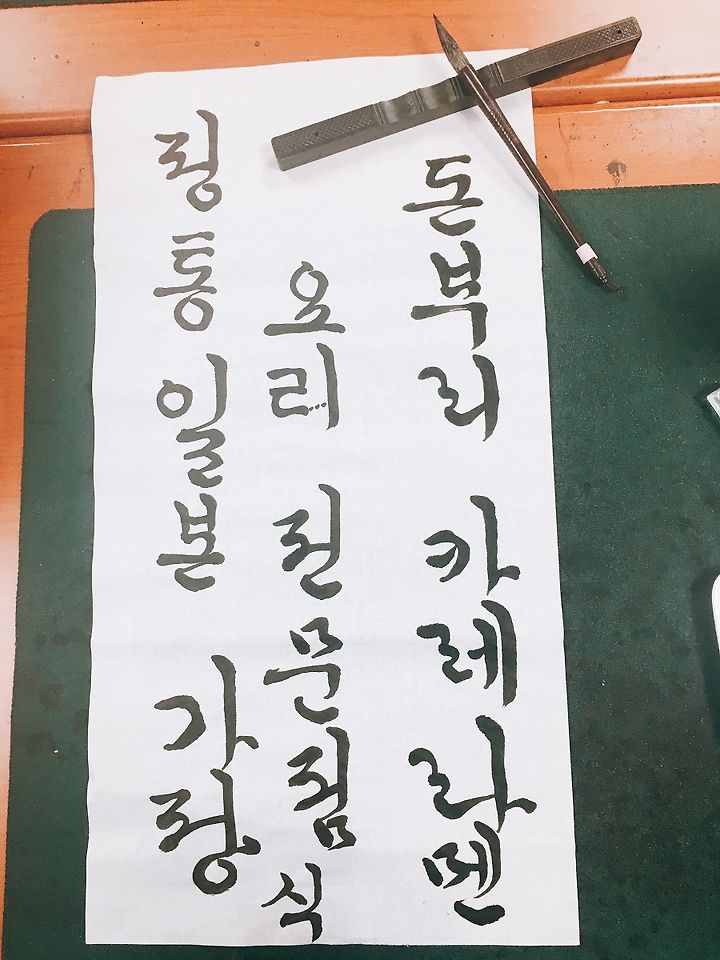 정통 일본 가정
요리 전문점 식
돈부리 카레 라멘